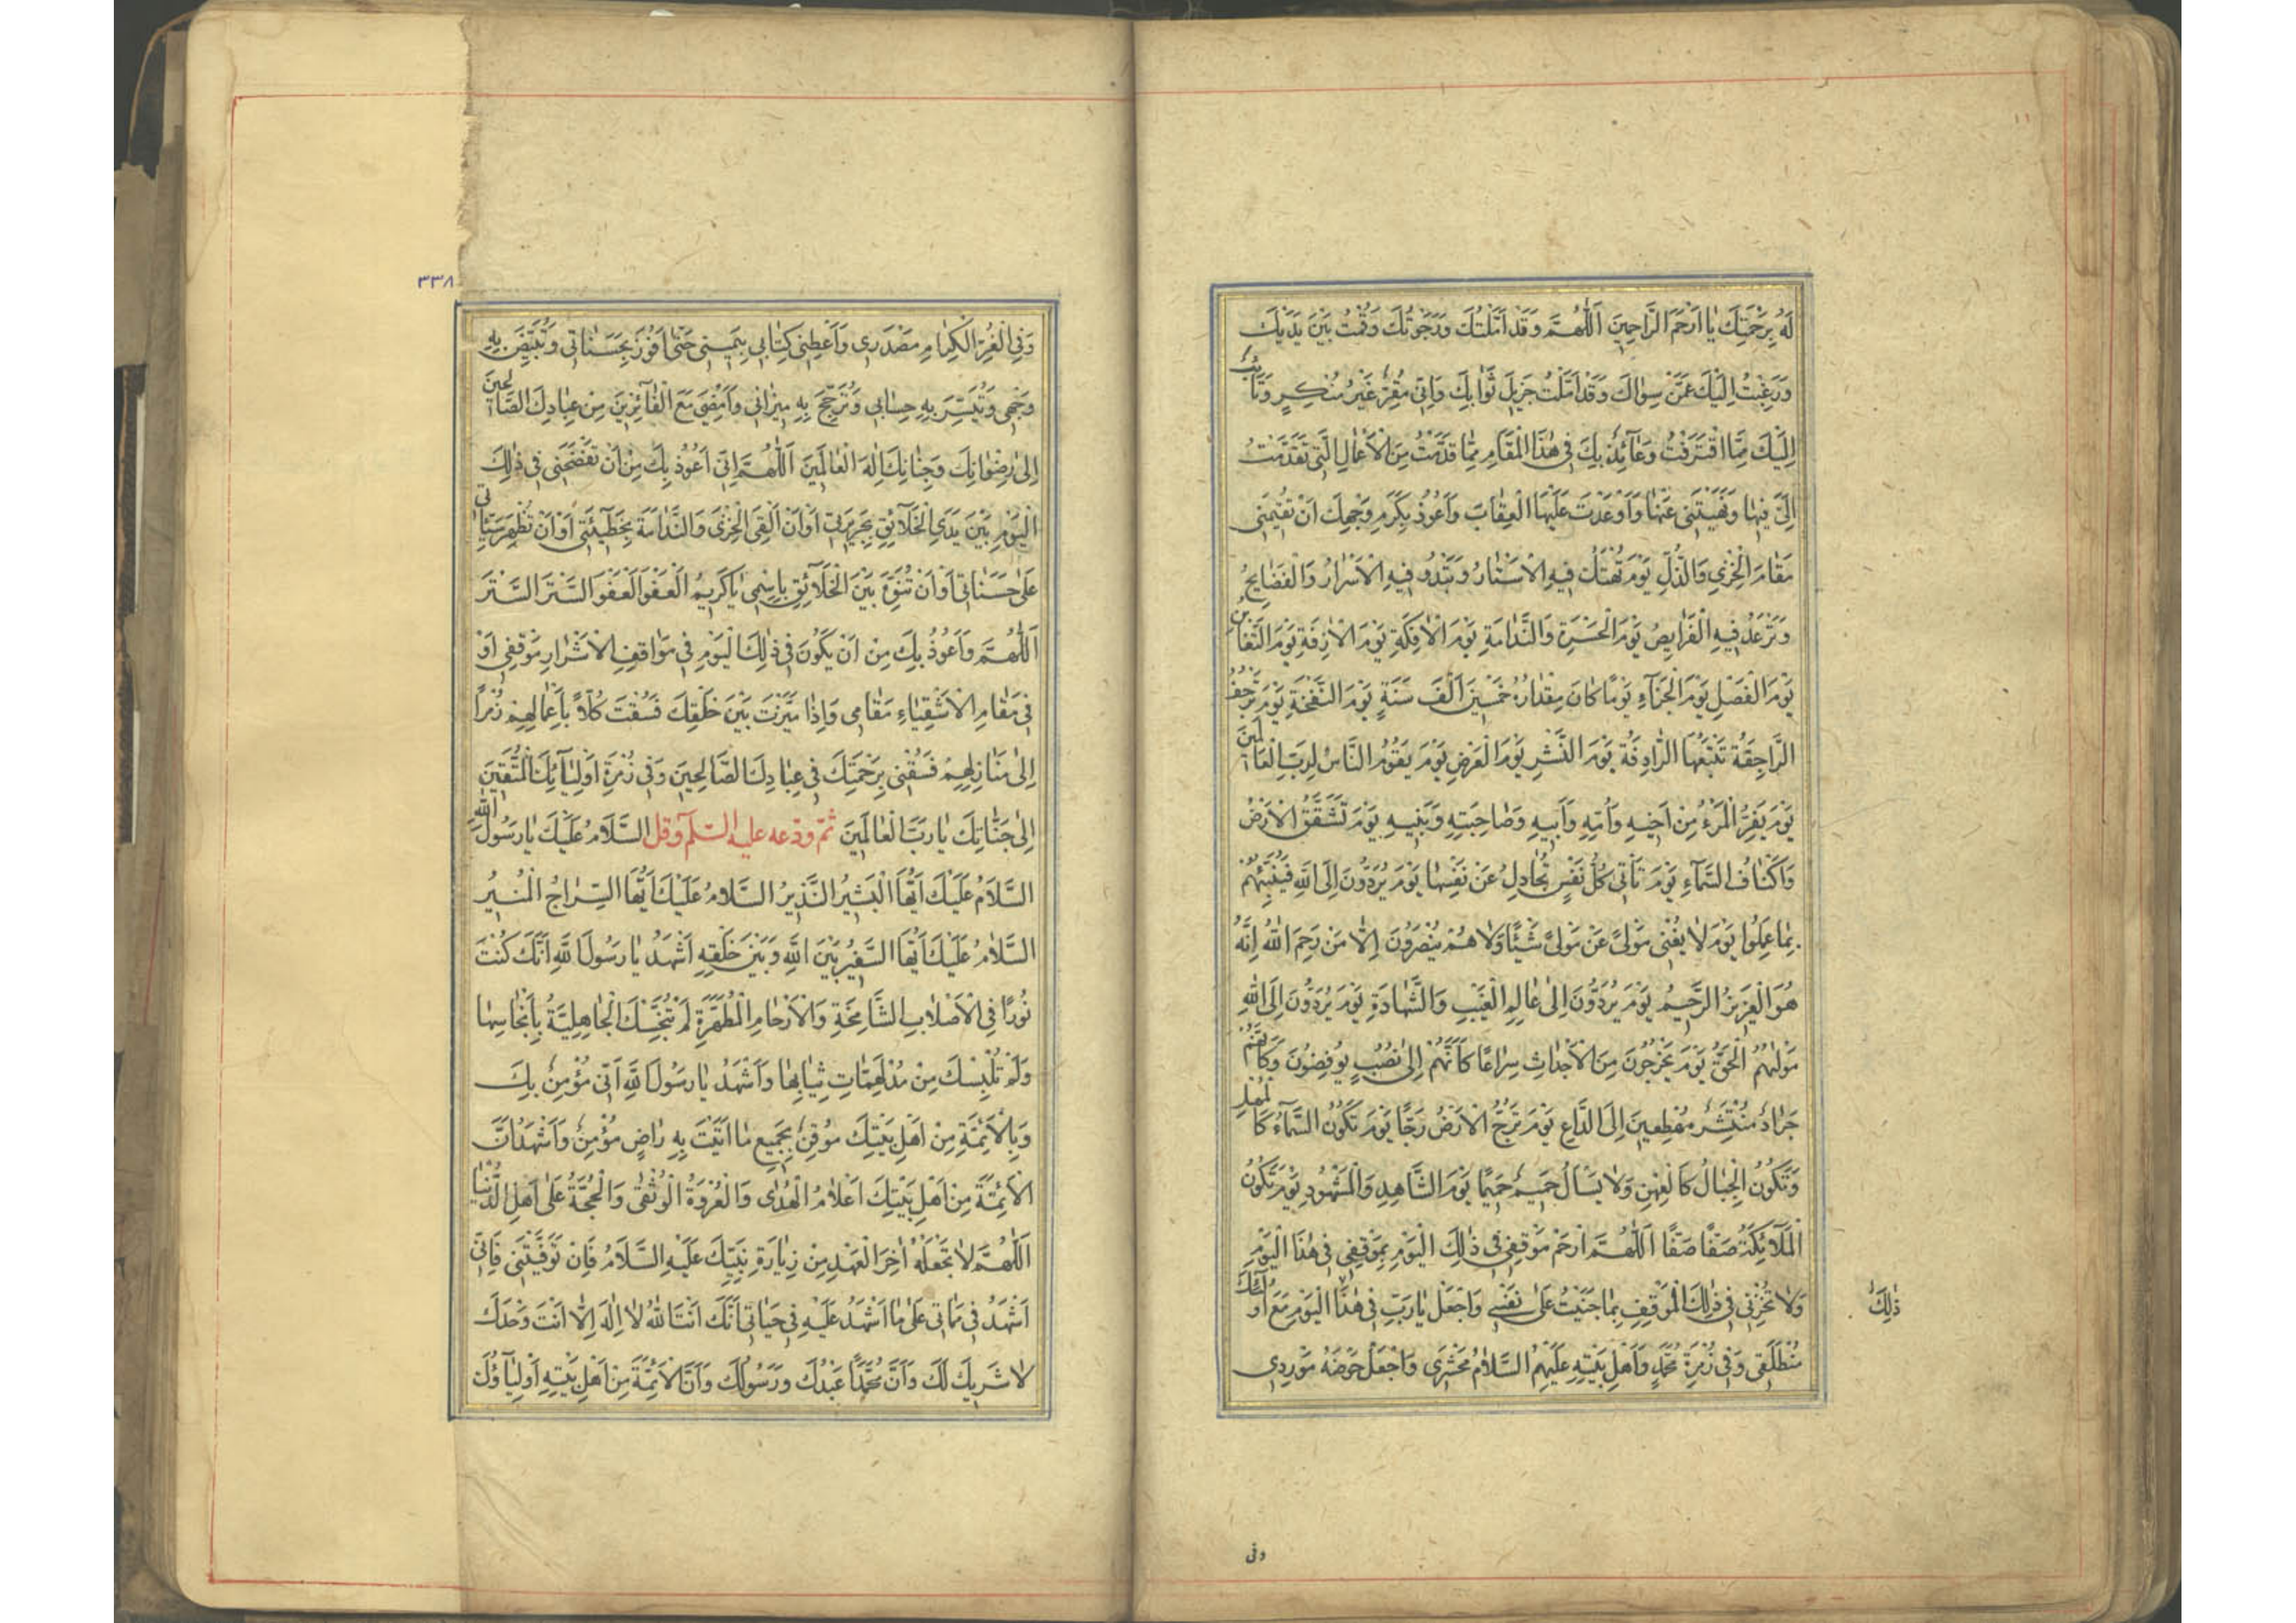 لَهُ بِرَحْمَتِكَ يَا اَرْحَمَ الرَّاحِمِينَ اَللّٰهُمَّ وَقَدْ اَمَّلْتُكَ وَرَجَوْتُكَ وَقُمْتُ بَيْنَ يَدَيْكَ
وَرَغِبْتُ اِلَيْكَ عَمَّنْ سِوَاكَ وَقَدْ اَمَّلْتُ جَزِيلَ ثَوَابِكَ وَاِنِّى مُقِرٌّ غَيْرُ مُنْكِرٍ وَتَائِبٌ
اِلَيْكَ مِمَّا اقْتَرَفْتُ وَعَآئِذٌ بِكَ فِى هٰذَا الْمَقَامِ مِمَّا قَدَّمْتُ مِنَ الْاَعْمَالِ الَّتِى تَقَدَّمْتَ
اِلَىَّ فِيهَا وَنَهَيْتَنِى عَنْهَا وَاَوْعَدْتَ عَلَيْهَا الْعِقَابَ وَاَعُوذُ بِكَرَمِ وَجْهِكَ اَنْ تُقِيمَنِى
مَقَامَ الْخِزْىِ وَالذُّلِّ يَوْمَ تُهْتَكُ فِيهِ الْاَسْتَارُ وَتَبْدُو فِيهِ الْاَسْرَارُ وَالْفَضَايِحُ
وَتَرْعَدُ فِيهِ الْفَرَايِصُ يَوْمَ الْحَسْرَةِ وَالنَّدَامَةِ يَوْمَ الْاٰفِكَةِ يَوْمَ الْاٰزِفَةِ يَوْمَ التَّغَابُنِ
يَوْمَ الْفَصْلِ يَوْمَ الْجَزَآءِ يَوْمًا كَانَ مِقْدَارُهُ خَمْسِينَ اَلْفَ سَنَةٍ يَوْمَ النَّفْخَةِ يَوْمَ تَرْجُفُ
الرَّاجِفَةُ تَتْبَعُهَا الرَّادِفَةُ يَوْمَ النَّشْرِ يَوْمَ الْعَرْضِ يَوْمَ يَقُومُ النَّاسُ لِرَبِّ الْعَالَمِينَ
يَوْمَ يَفِرُّ الْمَرْءُ مِنْ اَخِيهِ وَاُمِّهِ وَاَبِيهِ وَصَاحِبَتِهِ وَبَنِيهِ يَوْمَ تَشَقَّقُ الْاَرْضُ
وَاَكْنَافُ السَّمَآءِ يَوْمَ تَاْتِى كُلُّ نَفْسٍ تُجَادِلُ عَنْ نَفْسِهَا يَوْمَ يُرَدُّونَ اِلَى اللّٰهِ فَيُنَبِّئُهُمْ
بِمَا عَمِلُوا يَوْمَ لَا يُغْنِى مَوْلًى عَنْ مَوْلًى شَيْئًا وَلَا هُمْ يُنْصَرُونَ اِلَّا مَنْ رَحِمَ اللّٰهُ اِنَّهُ
هُوَ الْعَزِيزُ الرَّحِيمُ يَوْمَ يُرَدُّونَ اِلٰى عَالِمِ الْغَيْبِ وَالشَّهَادَةِ يَوْمَ يُرَدُّونَ اِلَى اللّٰهِ
مَوْلٰهُمُ الْحَقِّ يَوْمَ يَخْرُجُونَ مِنَ الْاَجْدَاثِ سِرَاعًا كَاَنَّهُمْ اِلٰى نُصُبٍ يُوفِضُونَ وَكَاَنَّهُمْ
جَرَادٌ مُنْتَشِرٌ مُهْطِعِينَ اِلَى الدَّاعِ يَوْمَ تُرَجُّ الْاَرْضُ رَجًّا يَوْمَ تَكُونُ السَّمَآءُ كَالْمُهْلِ
وَتَكُونُ الْجِبَالُ كَالْعِهْنِ وَلَا يَسْاَلُ حَمِيمٌ حَمِيمًا يَوْمَ الشَّاهِدِ وَالْمَشْهُودِ يَوْمَ تَكُونُ
الْمَلَآئِكَةُ صَفًّا صَفًّا اَللّٰهُمَّ ارْحَمْ مَوْقِفِى فِى ذٰلِكَ الْيَوْمِ بِمَوْقِفِى فِى هٰذَا الْيَوْمِ
وَلَا تُخْزِنِى فِى ذٰلِكَ الْمَوْقِفِ بِمَا جَنَيْتُ عَلٰى نَفْسِى وَاجْعَلْ يَا رَبِّ فِى هٰذَا الْيَوْمِ مَعَ اَوْلِيَآئِكَ
ذٰلِكَ
مُنْطَلَقِى وَفِى زُمْرَةِ مُحَمَّدٍ وَاَهْلِ بَيْتِهِ عَلَيْهِمُ السَّلَامُ مَحْشَرِى وَاجْعَلْ حَوْضَهُ مَوْرِدِى
وفى
٣٣٨
وَفِى الْغُرِّ الْكِرَامِ مَصْدَرِى وَاَعْطِنِى كِتَابِى بِيَمِينِى حَتّٰى اَفُوزَ بِحَسَنَاتِى وَتُبَيِّضَ بِهِ
وَجْهِى وَتُيَسِّرَ بِهِ حِسَابِى وَتُرَجِّحَ بِهِ مِيزَانِى وَاَمْضِىَ مَعَ الْفَآئِزِينَ مِنْ عِبَادِكَ الصَّالِحِينَ
اِلٰى رِضْوَانِكَ وَجِنَانِكَ اِلٰهَ الْعَالَمِينَ اَللّٰهُمَّ اِنِّى اَعُوذُ بِكَ مِنْ اَنْ تَفْضَحَنِى فِى ذٰلِكَ
الْيَوْمِ بَيْنَ يَدَىِ الْخَلَآئِقِ بِجَرِيرَتِى اَوْ اَنْ اَلْقَى الْخِزْىَ وَالنَّدَامَةَ بِخَطِيْئَتِى اَوْ اَنْ تُظْهِرَ سَيِّئَاتِى
عَلٰى حَسَنَاتِى اَوْ اَنْ تُنَوِّهَ بَيْنَ الْخَلَآئِقِ بِاسْمِى يَا كَرِيمُ الْعَفْوَ الْعَفْوَ السَّتْرَ السَّتْرَ
اَللّٰهُمَّ وَاَعُوذُ بِكَ مِنْ اَنْ يَكُونَ فِى ذٰلِكَ الْيَوْمِ فِى مَوَاقِفِ الْاَشْرَارِ مَوْقِفِى اَوْ
فِى مَقَامِ الْاَشْقِيَاءِ مَقَامِى وَاِذَا مَيَّزْتَ بَيْنَ خَلْقِكَ فَسُقْتَ كُلًّا بِاَعْمَالِهِمْ زُمَرًا
اِلٰى مَنَازِلِهِمْ فَسُقْنِى بِرَحْمَتِكَ فِى عِبَادِكَ الصَّالِحِينَ وَفِى زُمْرَةِ اَوْلِيَآئِكَ الْمُتَّقِينَ
اِلٰى جَنَّاتِكَ يَا رَبَّ الْعَالَمِينَ ثمّ ودّعه عليه السّلم وقل السَّلَامُ عَلَيْكَ يَا رَسُولَ اللّٰهِ
السَّلَامُ عَلَيْكَ اَيُّهَا الْبَشِيرُ النَّذِيرُ السَّلَامُ عَلَيْكَ اَيُّهَا السِّرَاجُ الْمُنِيرُ
السَّلَامُ عَلَيْكَ اَيُّهَا السَّفِيرُ بَيْنَ اللّٰهِ وَبَيْنَ خَلْقِهِ اَشْهَدُ يَا رَسُولَ اللّٰهِ اَنَّكَ كُنْتَ
نُورًا فِى الْاَصْلَابِ الشَّامِخَةِ وَالْاَرْحَامِ الْمُطَهَّرَةِ لَمْ تُنَجِّسْكَ الْجَاهِلِيَّةُ بِاَنْجَاسِهَا
وَلَمْ تُلْبِسْكَ مِنْ مُدْلَهِمَّاتِ ثِيَابِهَا وَاَشْهَدُ يَا رَسُولَ اللّٰهِ اَنِّى مُؤْمِنٌ بِكَ
وَبِالْاَئِمَّةِ مِنْ اَهْلِ بَيْتِكَ مُوقِنٌ بِجَمِيعِ مَا اَتَيْتَ بِهِ رَاضٍ مُؤْمِنٌ وَاَشْهَدُ اَنَّ
الْاَئِمَّةَ مِنْ اَهْلِ بَيْتِكَ اَعْلَامُ الْهُدٰى وَالْعُرْوَةُ الْوُثْقٰى وَالْحُجَّةُ عَلٰى اَهْلِ الدُّنْيَا
اَللّٰهُمَّ لَا تَجْعَلْهُ اٰخِرَ الْعَهْدِ مِنْ زِيَارَةِ نَبِيِّكَ عَلَيْهِ السَّلَامُ فَاِنْ تَوَفَّيْتَنِى فَاِنِّى
اَشْهَدُ فِى مَمَاتِى عَلٰى مَا اَشْهَدُ عَلَيْهِ فِى حَيَاتِى اَنَّكَ اَنْتَ اللّٰهُ لَا اِلٰهَ اِلَّا اَنْتَ وَحْدَكَ
لَا شَرِيكَ لَكَ وَاَنَّ مُحَمَّدًا عَبْدُكَ وَرَسُولُكَ وَاَنَّ الْاَئِمَّةَ مِنْ اَهْلِ بَيْتِهِ اَوْلِيَآؤُكَ